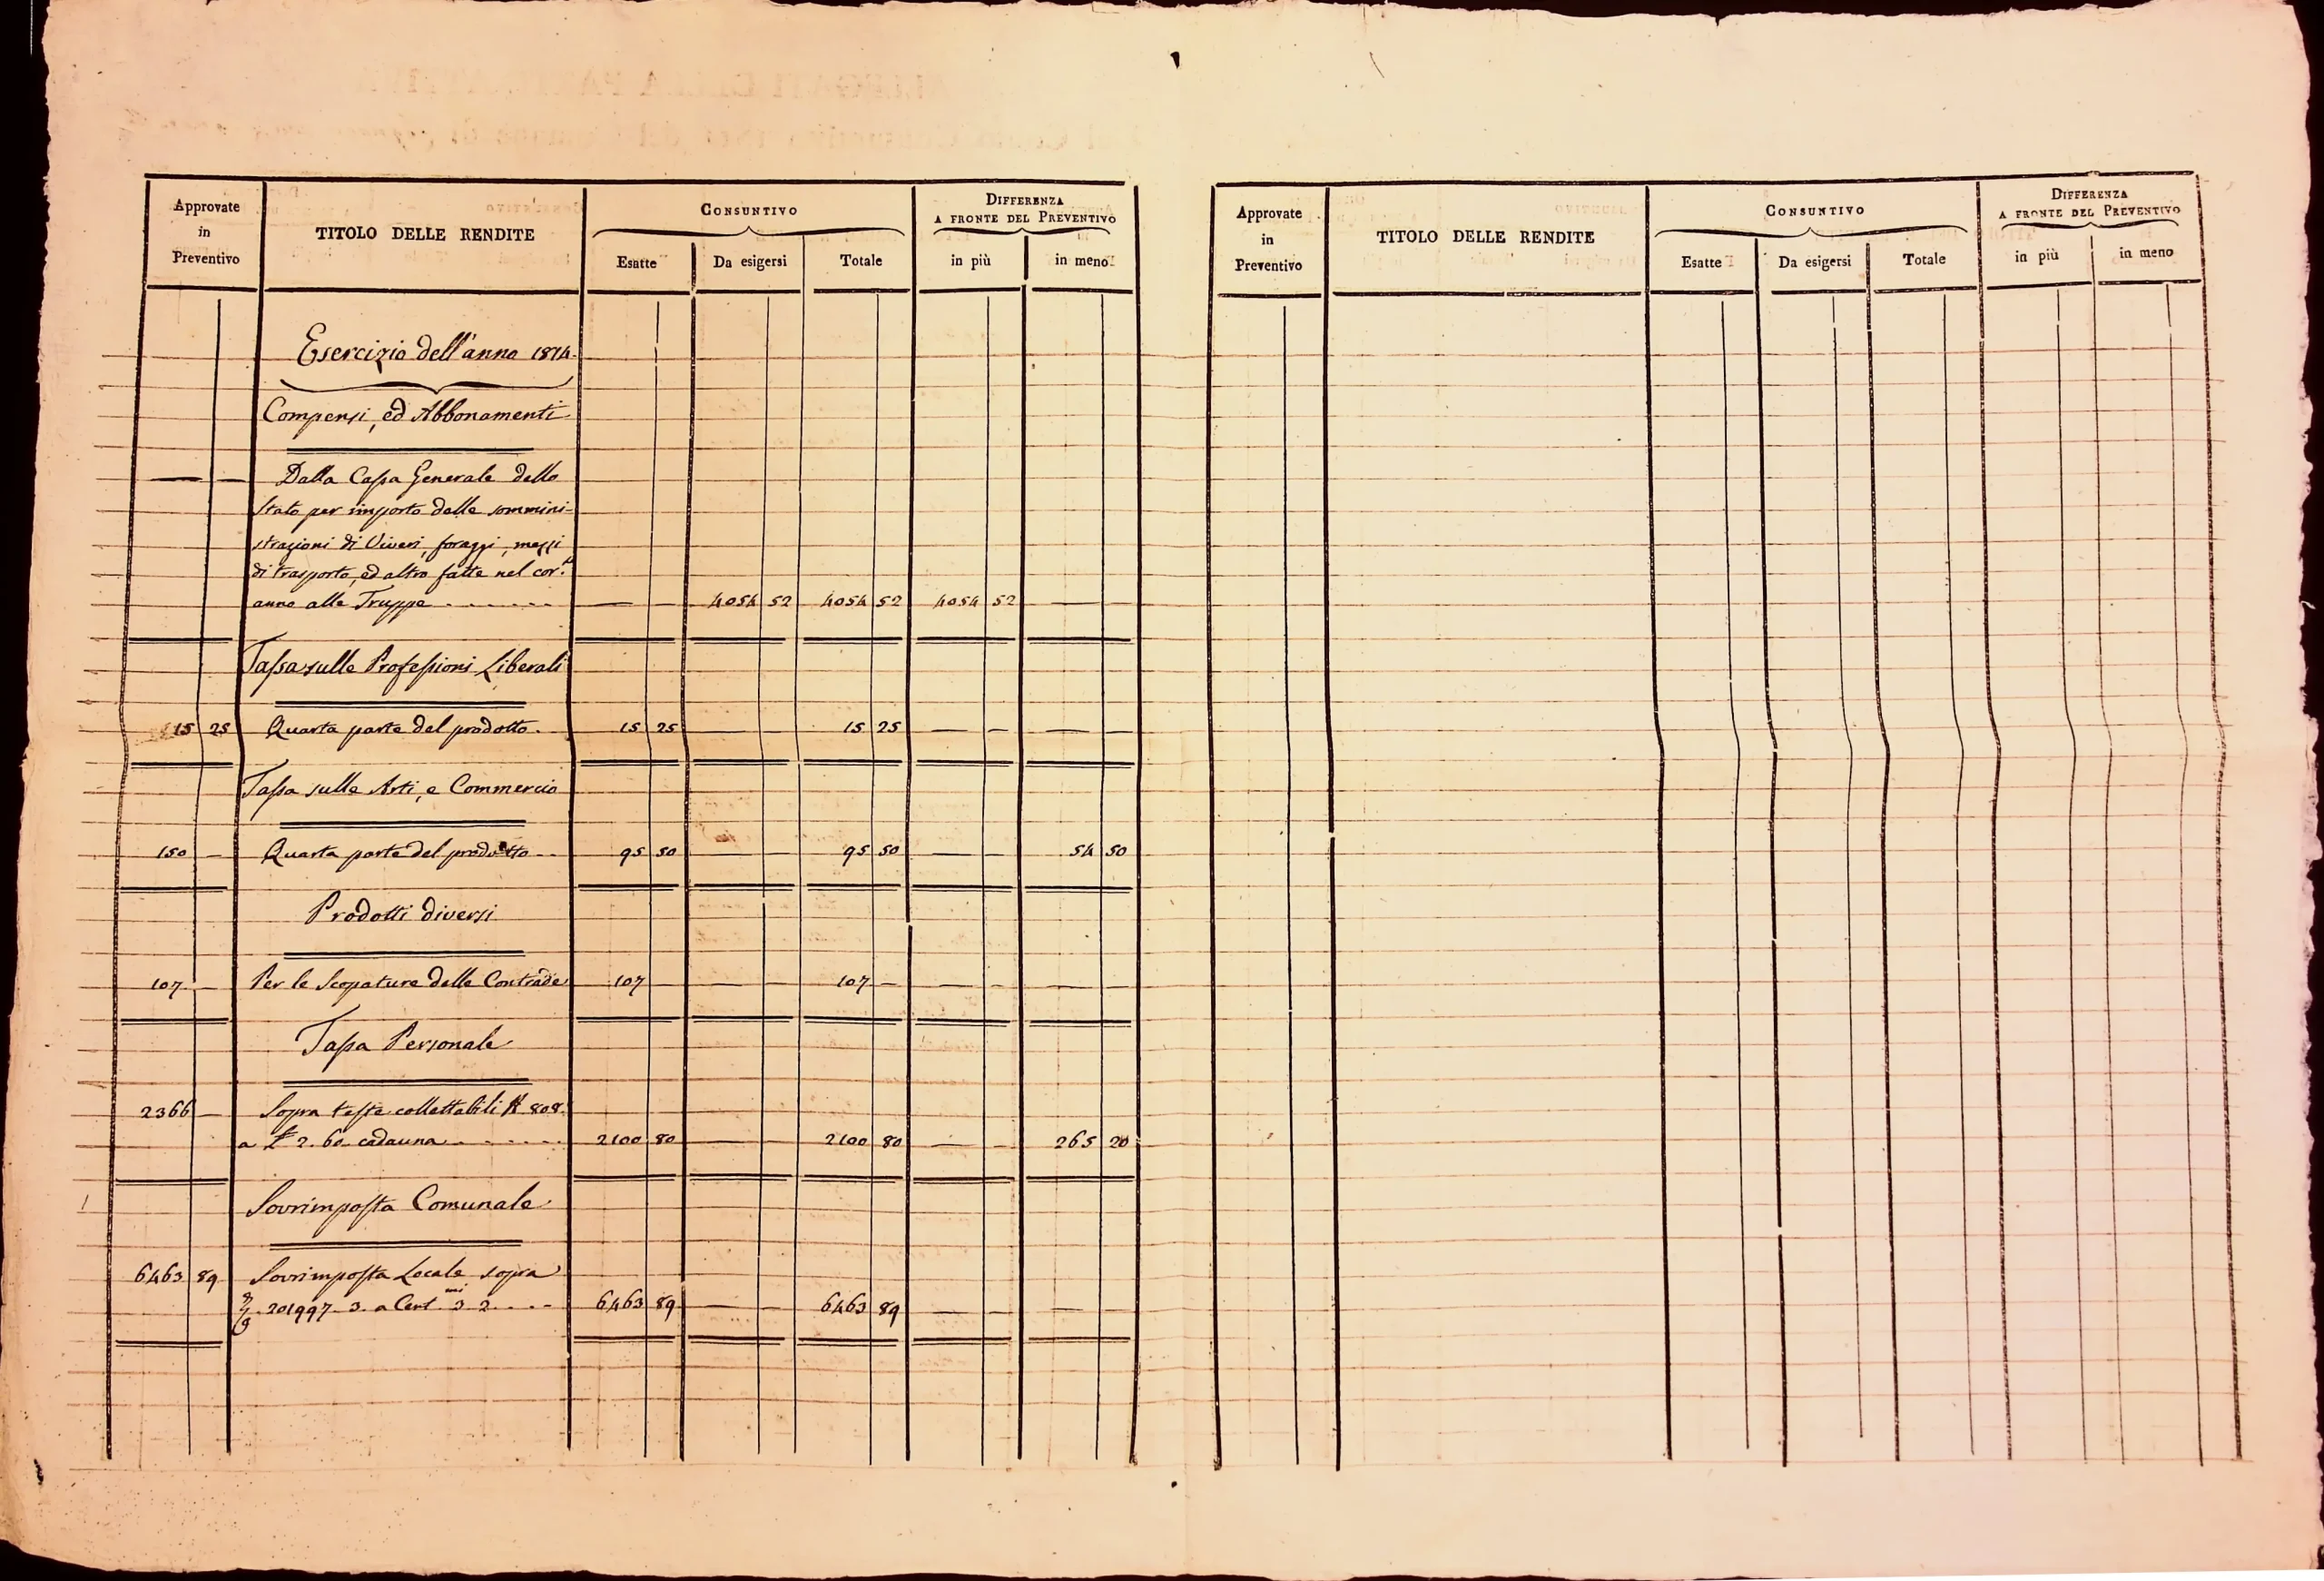 Approvate in Preventivo
TITOLO DELLE RENDITE
CONSUNTIVO
DIFFERENZA
A FRONTE DEL PREVENTIVO
Esatte Da esigersi Totale in più in meno
Esercizio dell'anno 1814.
Compensi, ed Abbonamenti
— — Dalla Cassa Generale dello
Stato per importo delle sommini-
strazioni di Viveri, foraggi, mezzi
di trasporto, ed altro fatte nel cor.e
anno alle Truppe . . . . . . . — — 4054 52 4054 52 4054 52 — —
Tassa sulle Professioni Liberali
15 25 Quarta parte del prodotto. 15 25 — — 15 25 — — — —
Tassa sulle Arti, e Commercio
150 — Quarta parte del prodotto .. 95 50 — — 95 50 — — 54 50
Prodotti diversi
107 — Per le Scopature delle Contrade 107 — — — 107 — — — — —
Tassa Personale
2366 — Sopra teste collettabili N 808.
a £ 2. 60 cadauna . . . . . . 2100 80 — — 2100 80 — — 265 20
Sovrimposta Comunale
6463 89 Sovrimposta Locale sopra
201997. 3. a Cent.mi 3. 2. . . . 6463 89 — — 6463 89 — — — —
Approvate in Preventivo
TITOLO DELLE RENDITE
CONSUNTIVO
DIFFERENZA
A FRONTE DEL PREVENTIVO
Esatte Da esigersi Totale in più in meno